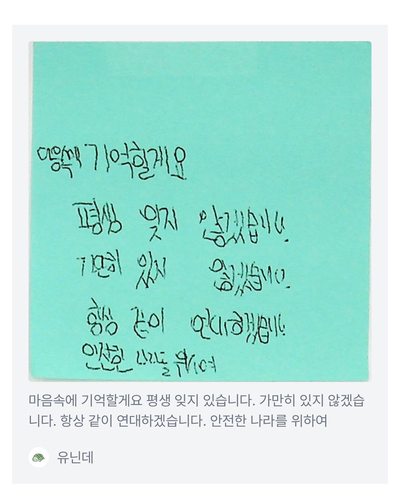 마음속에 기억할게요
평생 잊지 않겠습니다.
가만히 있지 않겠습니다.
항상 같이 연대하겠습니다.
안전한 나라를 위하여
마음속에 기억할게요 평생 잊지 있습니다. 가만히 있지 않겠습
니다. 항상 같이 연대하겠습니다. 안전한 나라를 위하여
유닌데